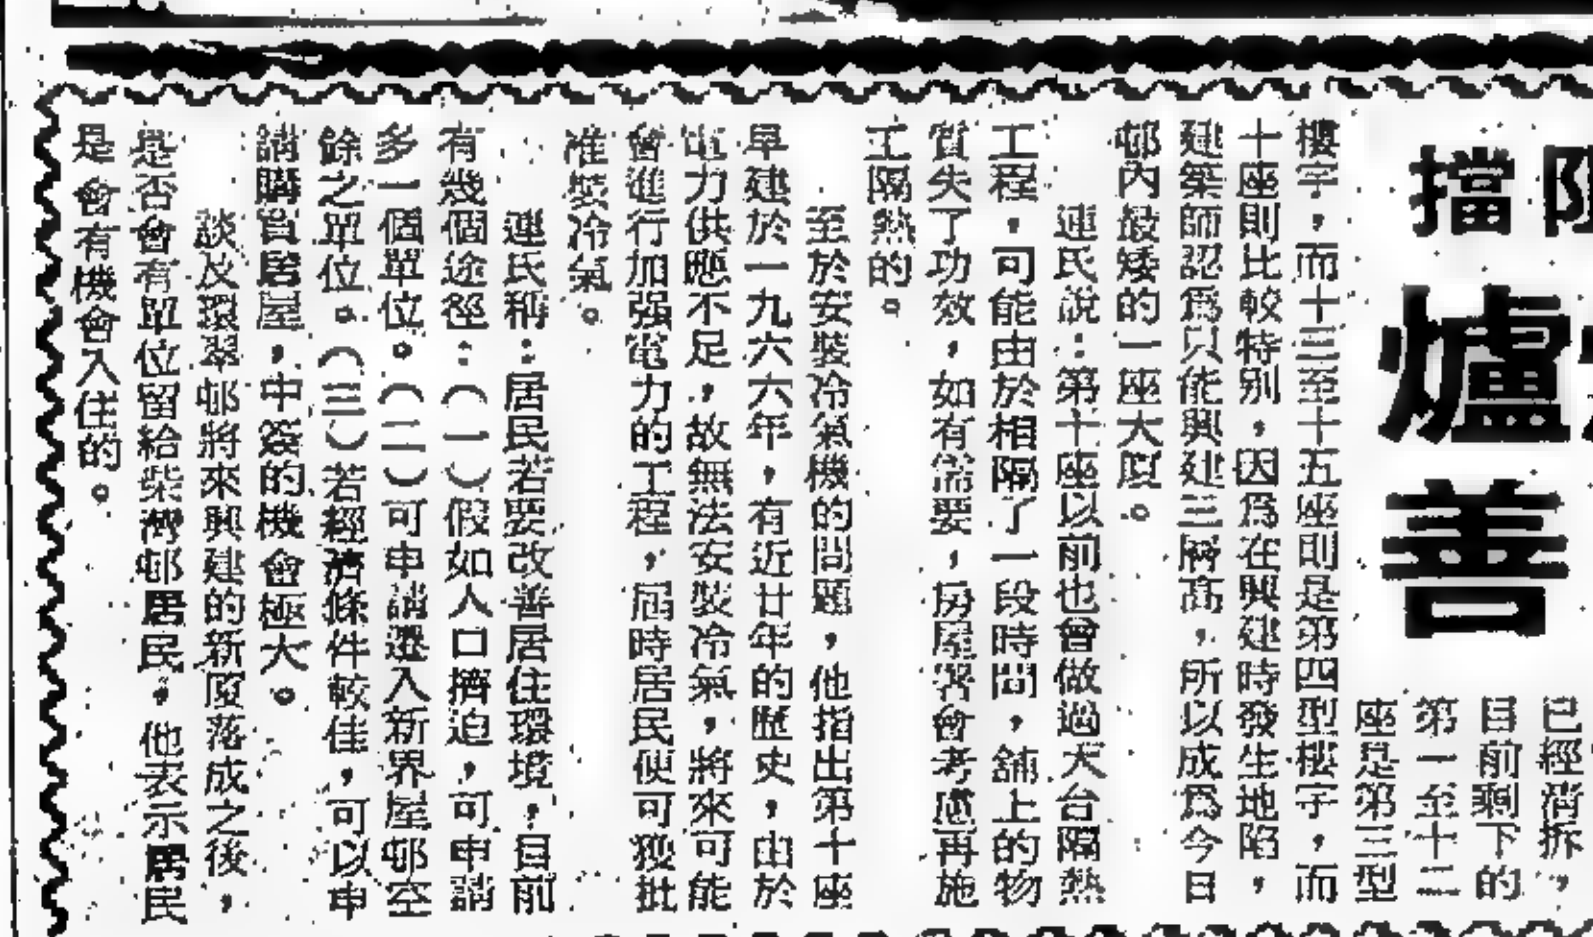 擋
爐
善
已經清拆，
目前剩下的
第一至十二
座是第三型
樓宇，而十三至十五座則是第四型樓宇，而
十座則比較特別，因爲在興建時發生地陷，
建築師認爲只能興建三層高，所以成爲今日
邨內最矮的一座大厦。
連民說：第十座以前也曾做過天台隔熱
工程，可能由於相隔了一段時間，舖上的物
質失了功效，如有需要，房屋署會考慮再施
工隔熱的。
至於安裝冷氣機的問題，他指出第十座
早建於一九六六年，有近廿年的歷史，由於
電力供應不足，故無法安裝冷氣，將來可能
會進行加强電力的工程，屆時居民便可獲批
准裝冷氣。
連氏稱：居民若要改善居住環境，目前
有幾個途徑：（一）假如人口擠迫，可申請
多一個單位。（二）可申請遷入新界屋邨空
餘之單位。（三）若經濟條件較佳，可以申
請購買居屋，中簽的機會極大。
談及環翠邨將來興建的新厦落成之後，
是否會有單位留給柴灣邨居民，他表示居民
是會有機會入住的。